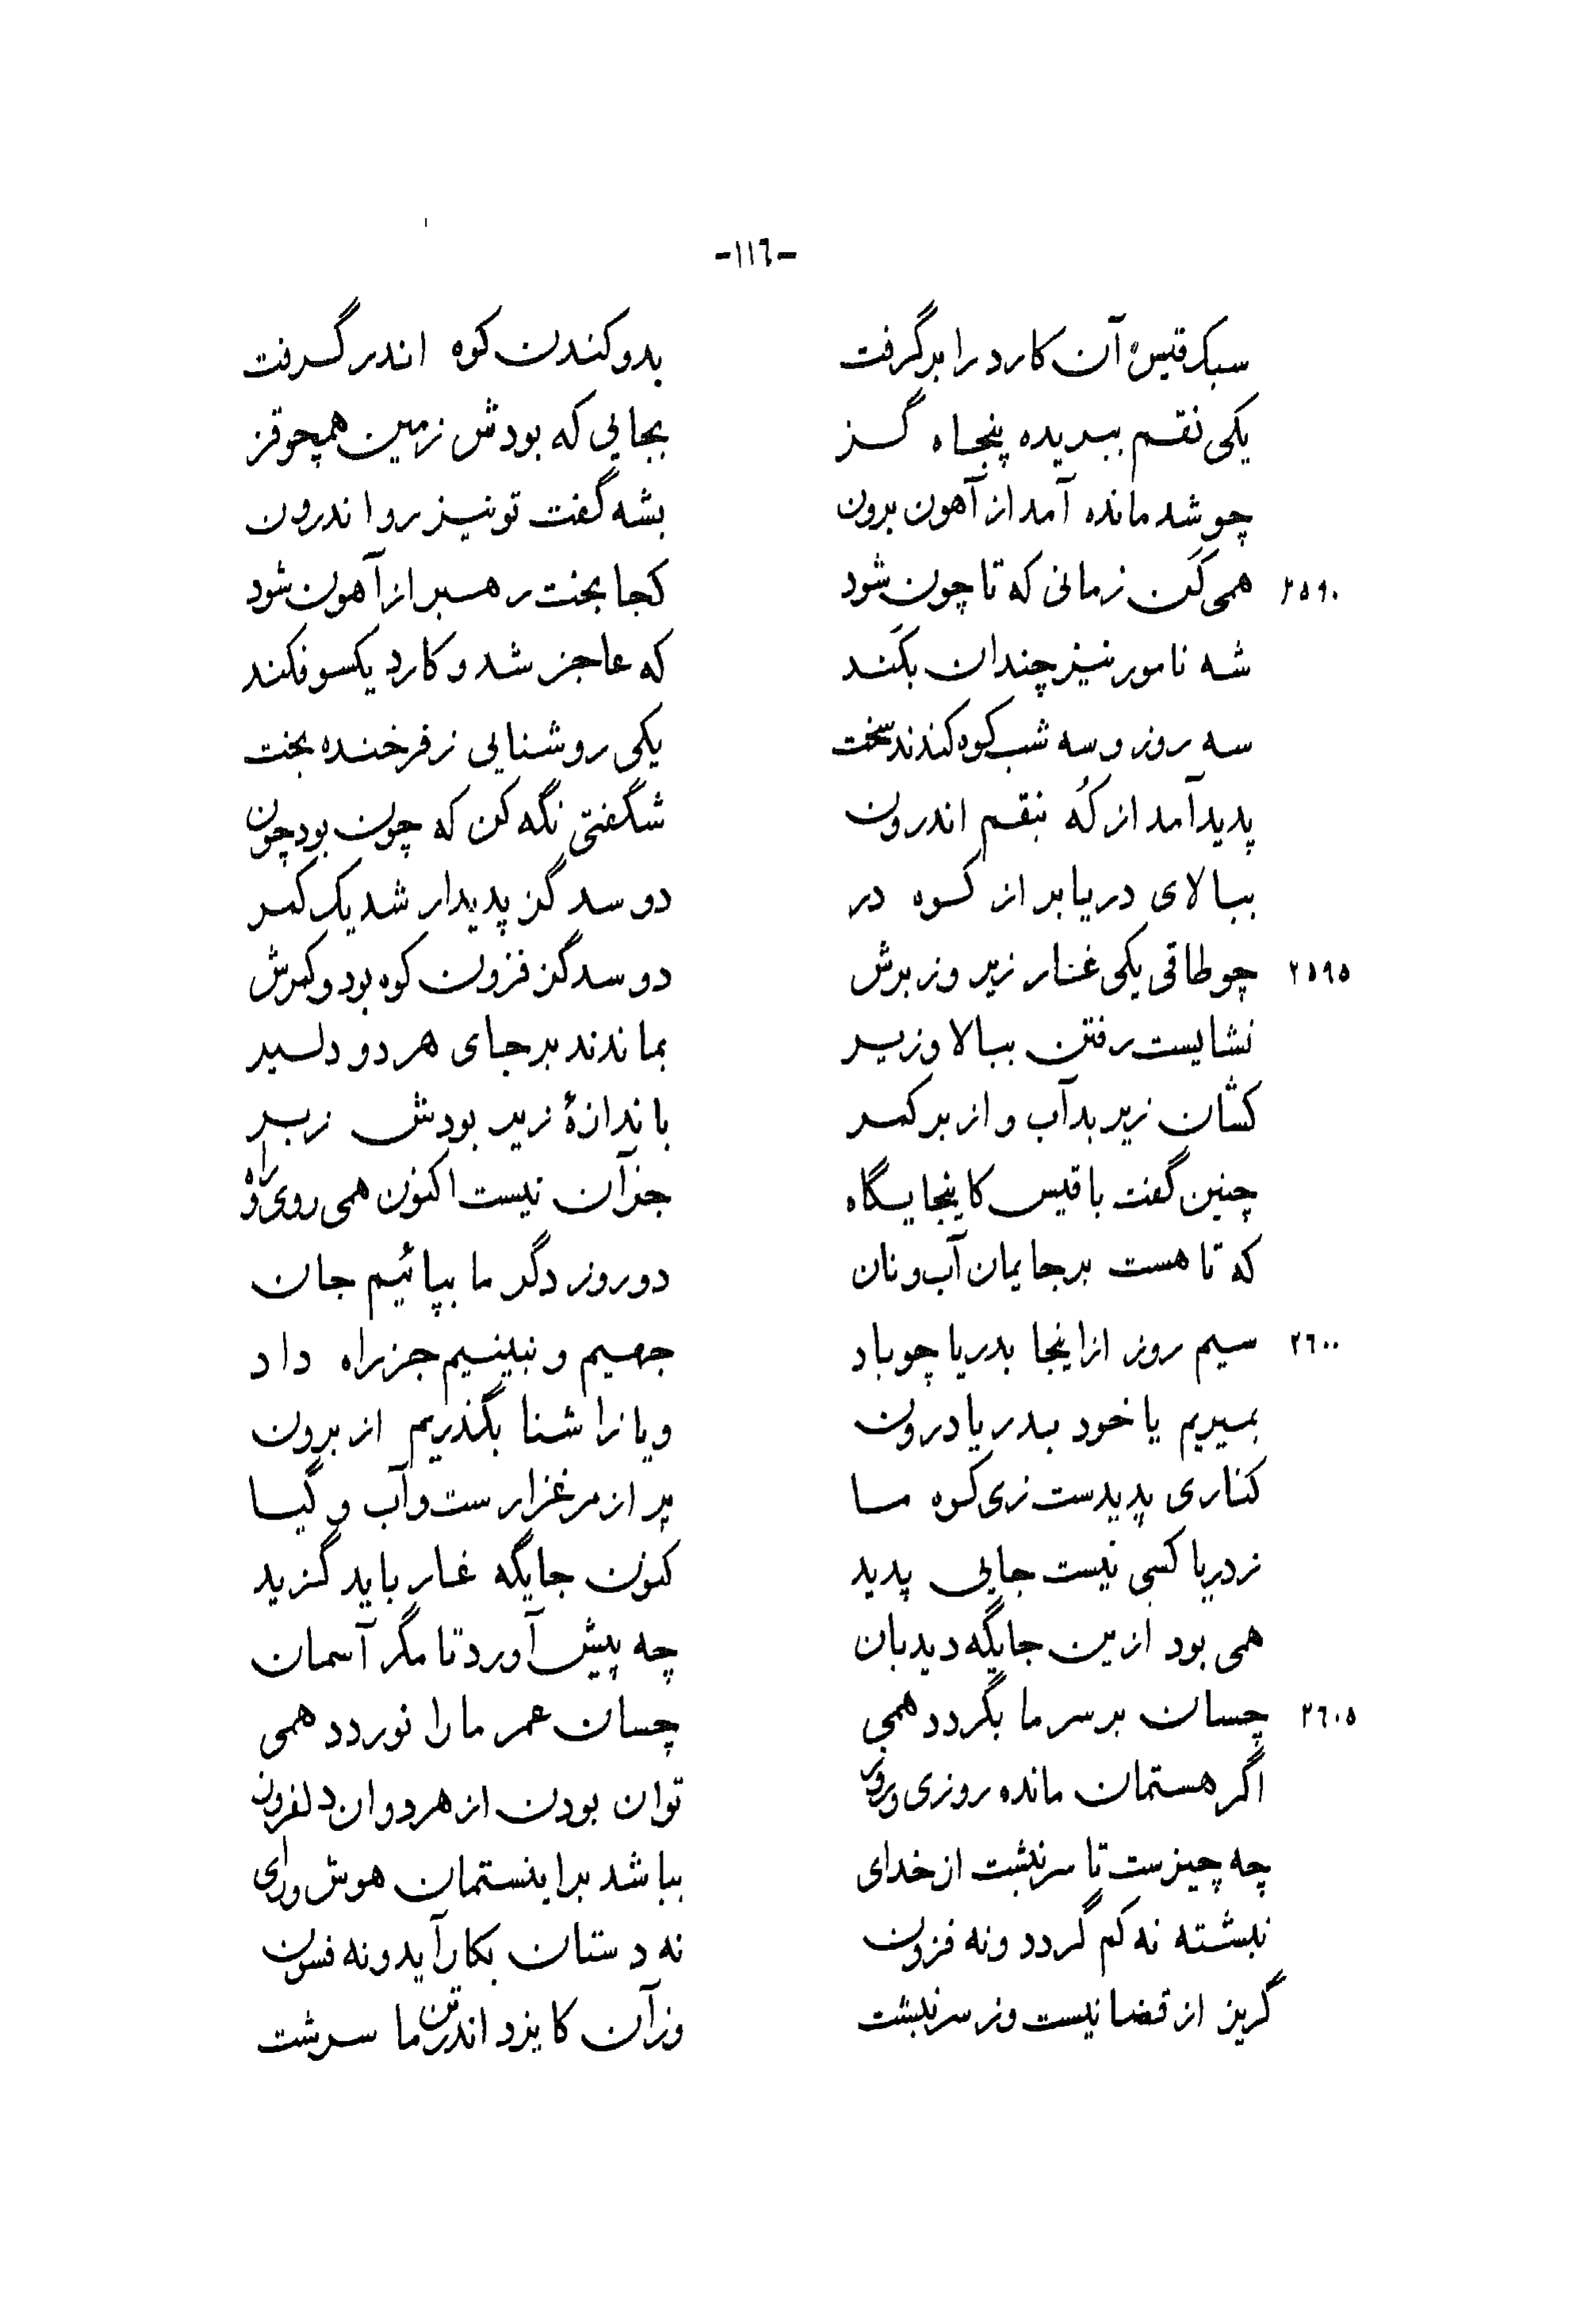 -١١٦-
سبک قیس آن کارد را برگرفت بدو کندن کوه اندر گرفت
یکی نقم ببریده پنجاه گز بجایی که بودش زمین همچو قز
چو شد مانده آمد از آهون برون بشه گفت تو نیز رو اندرون
٢٥٩٠ همی کَن زمانی که تا چون شود کجا بخت رهبر از آهون شود
شه نامور نیز چندان بکَند که عاجز شد و کارد یکسو فکند
سه روز و سه شب کوه کندند سخت یکی روشنایی ز فرخنده بخت
پدید آمد از کُه بنقم اندرون شگفتی نگه کن که چون بود چون
ببالای دریا بر از کوه در دو سد گز پدیدار شد یک کمر
٢٥٩٥ چو طاقی یکی غار زیر و زبرش دو سد گز فزون کوه بود و کمرش
نشایست رفتن ببالا و زیر بماندند بر جای هر دو دلیر
کشان زیر بد آب و از بر کمر باندازهٔ زیر بودش زبر
چنین گفت با قیس کاینجایگاه جز آن نیست اکنون همی روی و راه
که تا هست بر جایمان آب و نان دو روز دگر ما بپائیم جان
٢٦٠٠ سیم روز از اینجا بدریا چو باد جهیم و نبینیم جز راه داد
بمیریم یا خود بدریا درون و یا زاشنا بگذریم از برون
کناری پدیدست زی کوه سا پر از مرغزارست و آب و گیا
ز دریا کسی نیست جایی پدید کنون جایگه غار باید گزید
همی بود ازین جایگه دیدبان چه پیش آورد تا مگر آسمان
٢٦٠٥ چسان بر سر ما بگردد همی چسان عمر ما را نوردد همی
اگر هستمان مانده روزی و روز توان بودن از هر دوان دلفروز
چه چیزست تا سرنبشت از خدای بباشد براینستمان هوش و رای
نبشته نه کم گردد و نه فزون نه دستان بکار آید و نه فسون
گریز از قضا نیست وز سرنبشت وز آن کایزد اندر تن ما سرشت